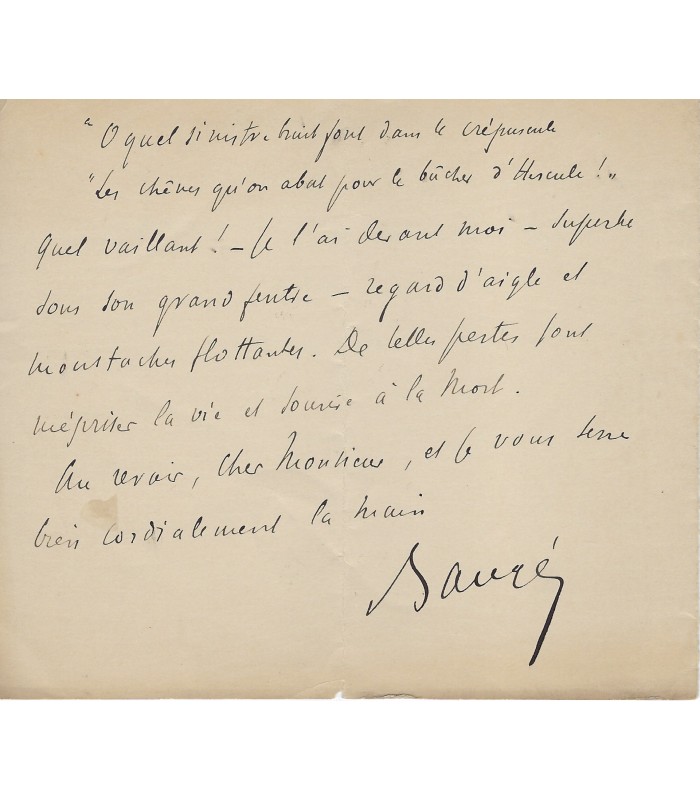 "O quel sinistre bruit font dans le crépuscule
"Les chênes qu'on abat pour le bûcher d'Hercule!"
Quel vaillant! – Je l'ai devant moi – superbe
sous son grand feutre – regard d'aigle et
moustaches flottantes. De telles pertes font
mépriser la vie et sourire à la Mort.
Au revoir, cher Monsieur, et je vous serre
bien cordialement la main